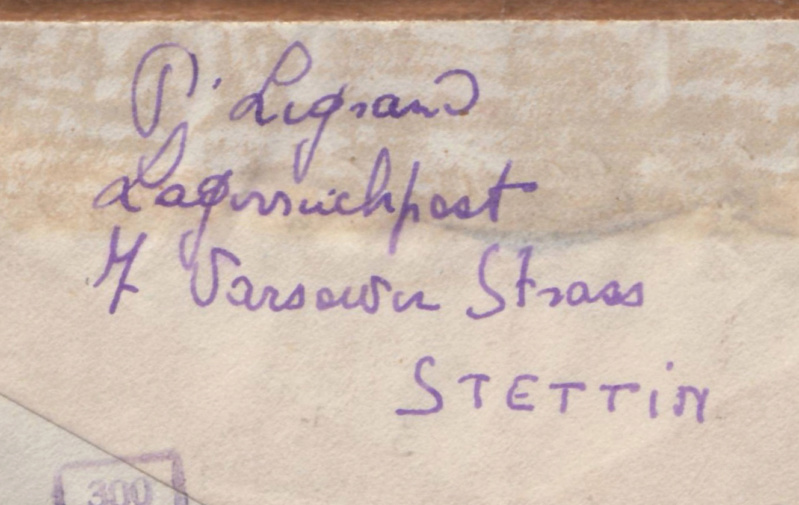 P. Legrand
Lagerrückpost
7 Varsower Strass
STETTIN
300